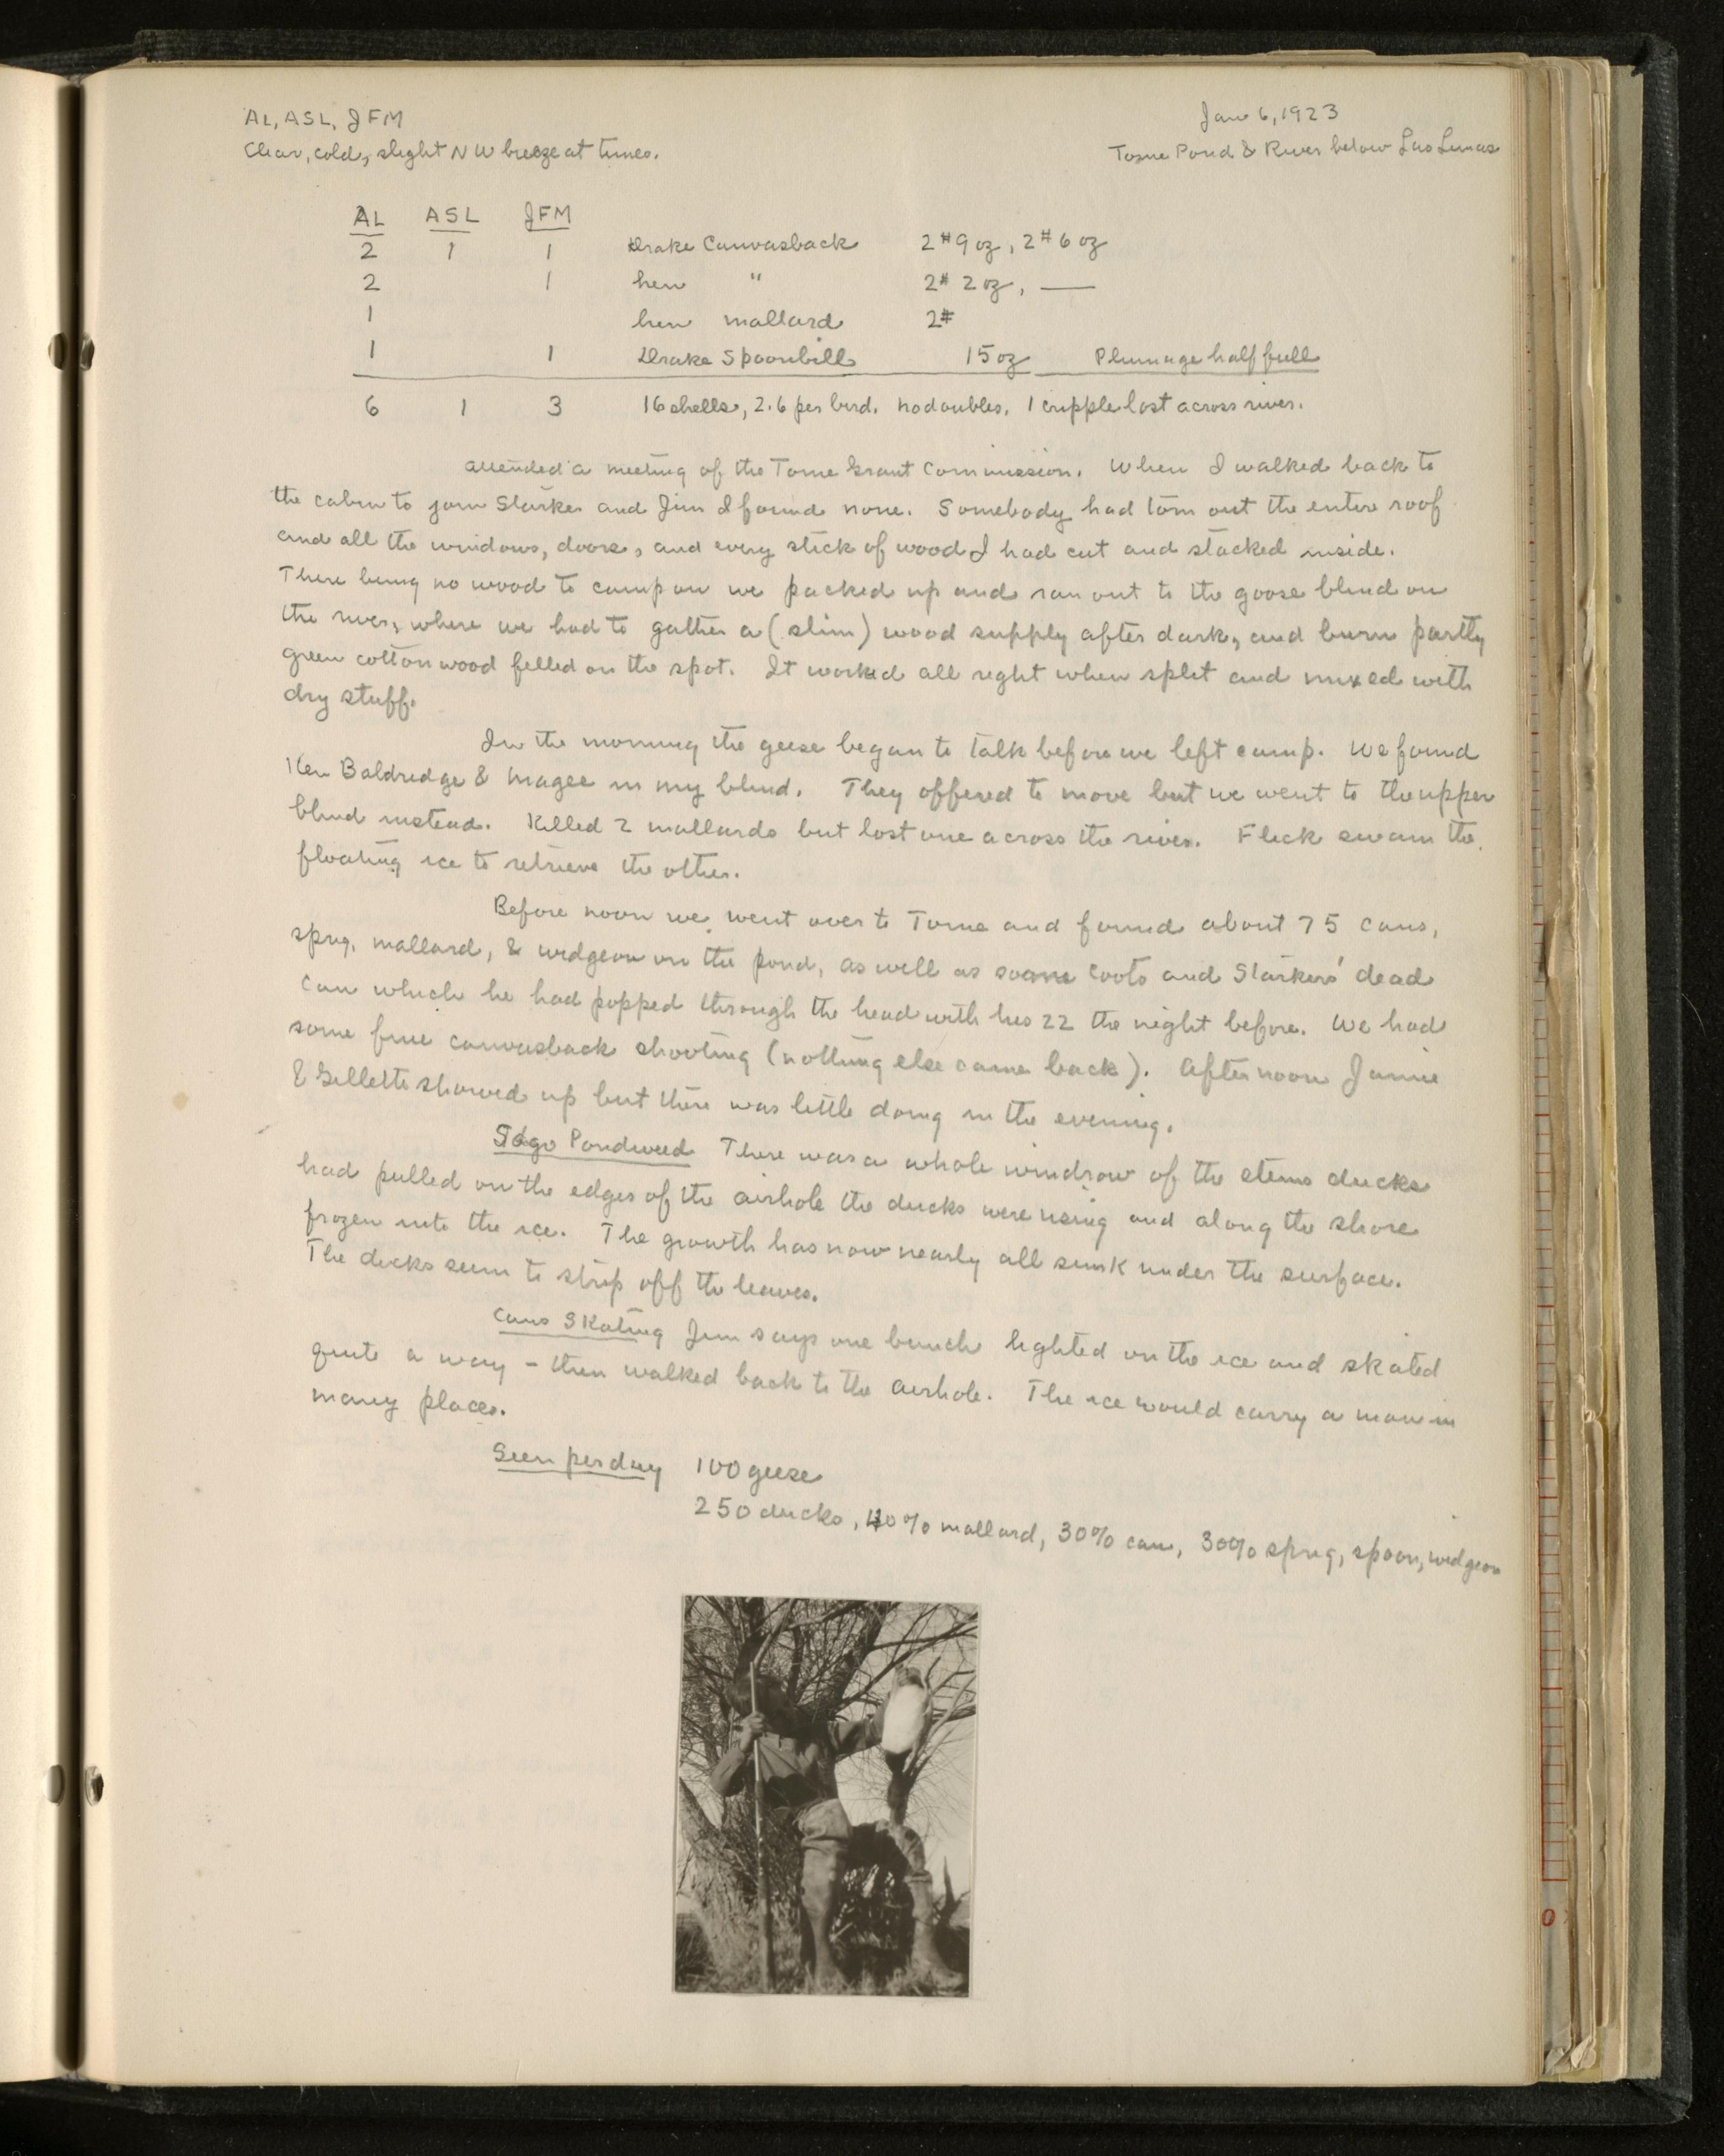 AL, ASL, JFM
Jan 6, 1923
Clear, cold, slight NW breeze at times.
Tome Pond & River below Los Lunas
AL ASL JFM
2 1 1 Drake Canvasback 2# 9 oz, 2# 6 oz
2 1 hen " 2# 2 oz, —
1 hen mallard 2#
1 1 Drake Spoonbill 15 oz Plumage half full
6 1 3 16 shells, 2.6 per bird. no doubles. 1 cripple lost across river.
Attended a meeting of the Tome Grant Commission. When I walked back to
the cabin to join Starker and Jim I found none. Somebody had torn out the entire roof
and all the windows, doors, and every stick of wood I had cut and stacked inside.
There being no wood to camp on we packed up and ran out to the goose blind on
the river, where we had to gather a (slim) wood supply after dark, and burn partly
green cottonwood felled on the spot. It worked all right when split and mixed with
dry stuff.
In the morning the geese began to talk before we left camp. We found
Ken Baldredge & Magee in my blind. They offered to move but we went to the upper
blind instead. Killed 2 mallards but lost one across the river. Flick swam the
floating ice to retrieve the other.
Before noon we went over to Tome and found about 75 cans,
sprig, mallard, & widgeon on the pond, as well as some coots and Starkers' dead
can which he had popped through the head with his 22 the night before. We had
some fine canvasback shooting (nothing else came back). Afternoon Jamie
& Gillette showed up but there was little doing in the evening.
Sago Pondweed There was a whole windrow of the stems ducks
had pulled on the edges of the airhole the ducks were using and along the shore
frozen into the ice. The growth has now nearly all sunk under the surface.
The ducks seem to strip off the leaves.
Cans Skating Jim says one bunch lighted on the ice and skated
quite a way – then walked back to the airhole. The ice would carry a man in
many places.
Seen per day 100 geese
250 ducks, 40% mallard, 30% can, 30% sprig, spoon, widgeon